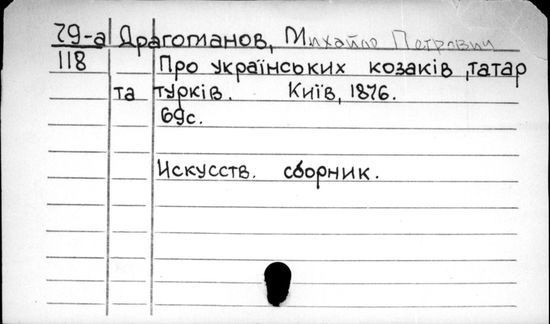 79-а Драгоманов, Михайло Петрович
118 Про українських козаків, татар
та турків. Київ, 1876.
69с.
Искусств. сборник.